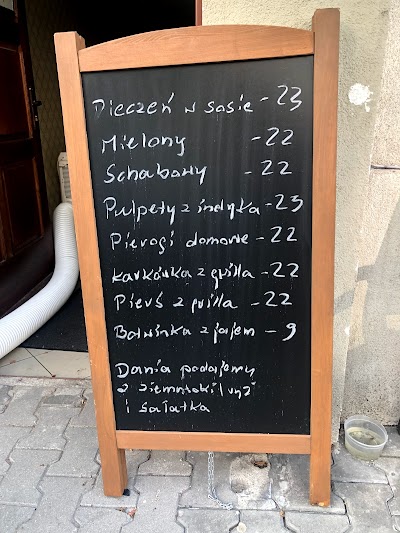 Pieczeń w sosie - 23
Mielony - 22
Schabowy - 22
Pulpety z indyka - 23
Pierogi domowe - 22
Karkówka z grilla - 22
Pierś z grilla - 22
Botwinka z jajem - 9
Dania podajemy
z ziemniaki/ryż
i sałatka